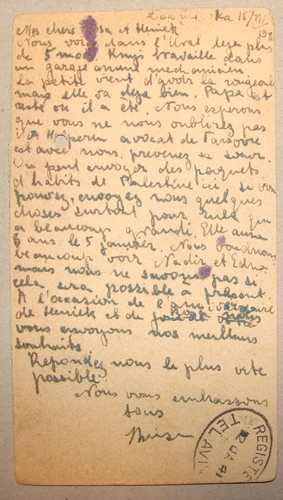 Mes chers Rosa et Heniek
Nous voici dans l'Ural deja plus
de 5 mois travaille dans
un garage
La petite vient d'avoir la rougeole
mais elle va deja bien. Papa est
resté ou il a eté. Nous esperons
que vous ne nous oublirez pas
avocat de Varsovie
est avec nous, prevenez sa soeur.
On peut envoyer des paquets
d'habits de Palestine ici, si vous
pouvez, envoyez nous quelques
choses surtout pour qui
a beaucoup grandi. Elle aura
6 ans le 5 janvier. Nous voudrions
beaucoup voir Nadir et Edna
mais nous ne savons pas si
cela sera possible a présent.
A l'occasion de l'anniversaire
de Heniek et de
vous envoyons nos meilleurs
souhaits
Repondez nous le plus vite
possible.
Nous vous embrassons
tous
REGISTE
TEL AVIV